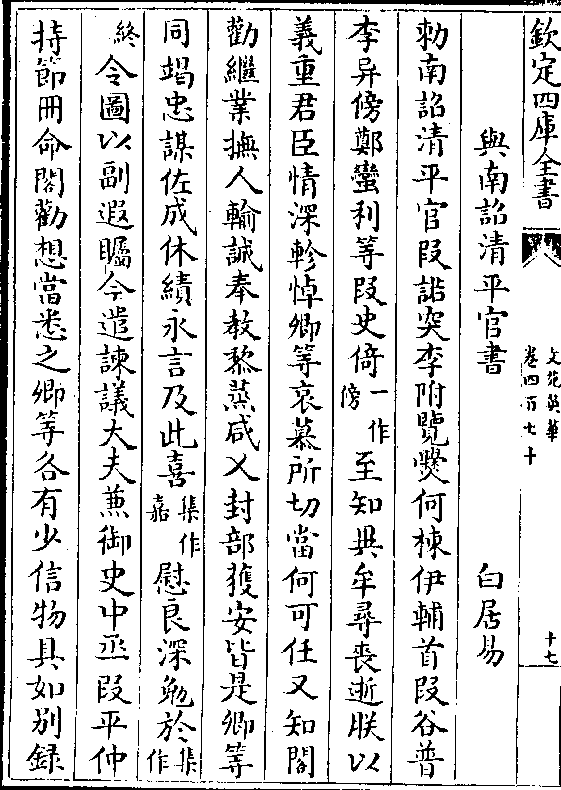 欽定四庫全書
文苑英華
卷四百七十
十七
與南詔清平官書 白居易
勅南詔清平官段諾突李附覽爨何棟伊輔首段谷普
李异傍鄭蠻利等段史倚一作傍至知異牟尋喪逝朕以
義重君臣情深軫悼卿等哀慕所切當何可任又知閤
勸繼業撫人輸誠奉教黎蒸咸乂封部獲安皆是卿等
同竭忠謀佐成休績永言及此喜集作嘉慰良深勉於集作
終令圖以副遐矚今遣諫議大夫兼御史中丞段平仲
持節冊命閤勸想當悉之卿等各有少信物具如別錄